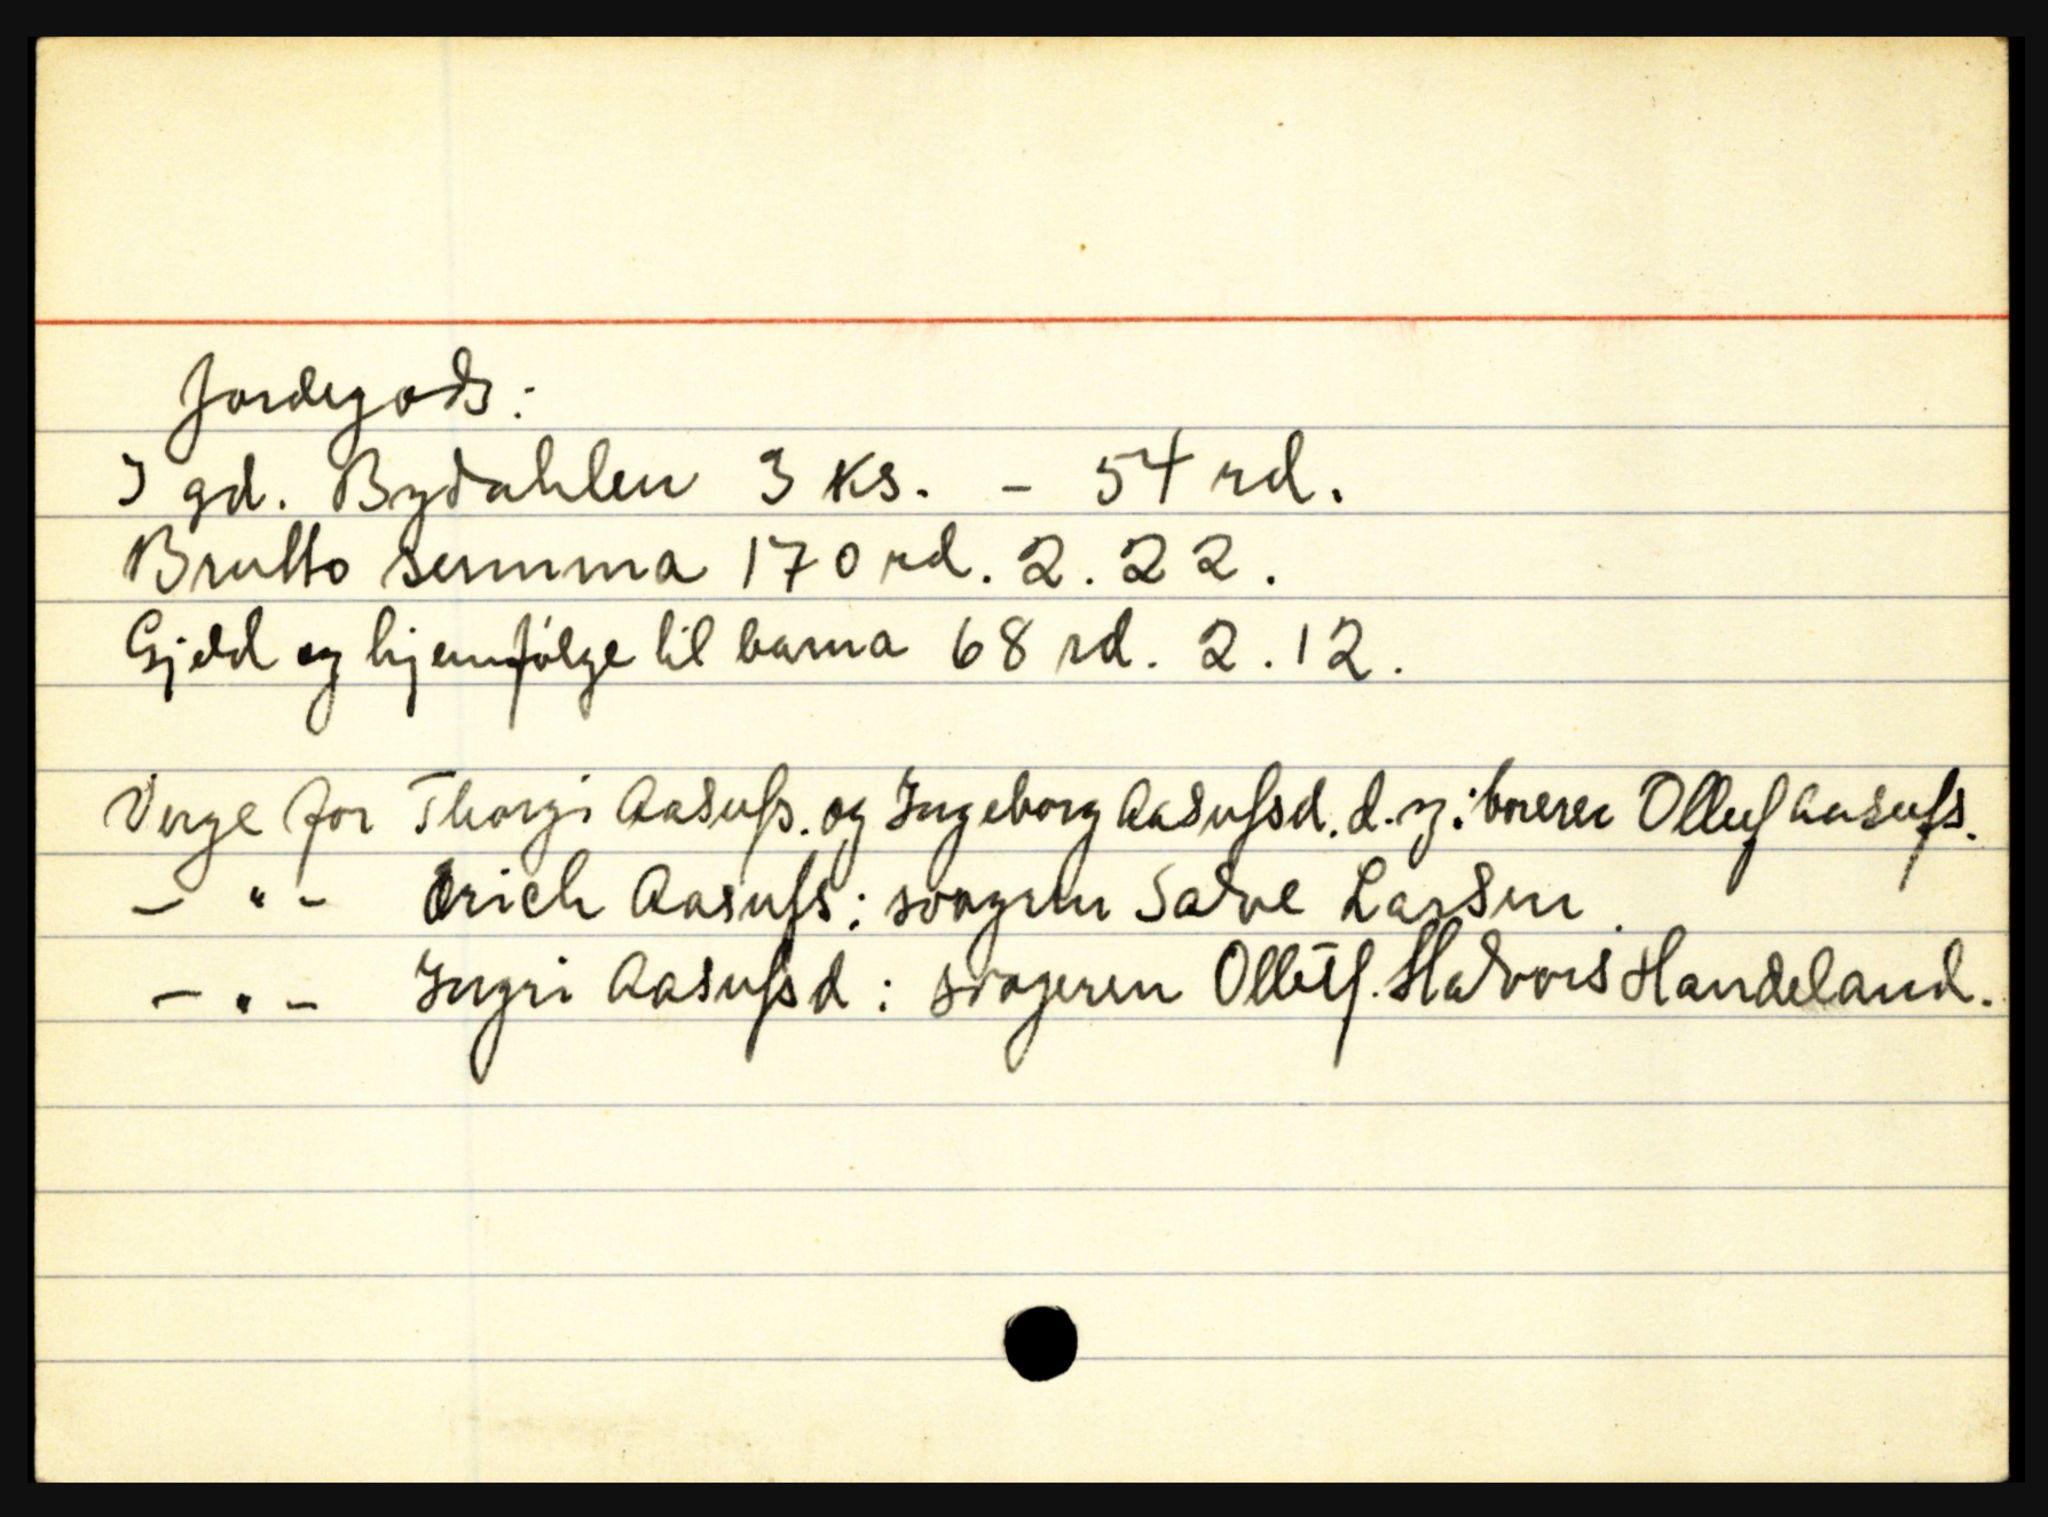 Jordegods:
I gd. Bydahlen 3 ks. - 54 rd.
Brutto summa 170 rd. 2. 22.
Gjeld og hjemfølge til barna 68 rd. 2. 12.
Verge for Thorgi Aasulfs. og Ingeborg Aasulfsd. d. y: Olluf Aasulfs.
- " - Erich Aasulfs: svogeren Salve Larsen.
- " - Ingri Aasulfsd: svogeren Olluf. Halvors Handeland.